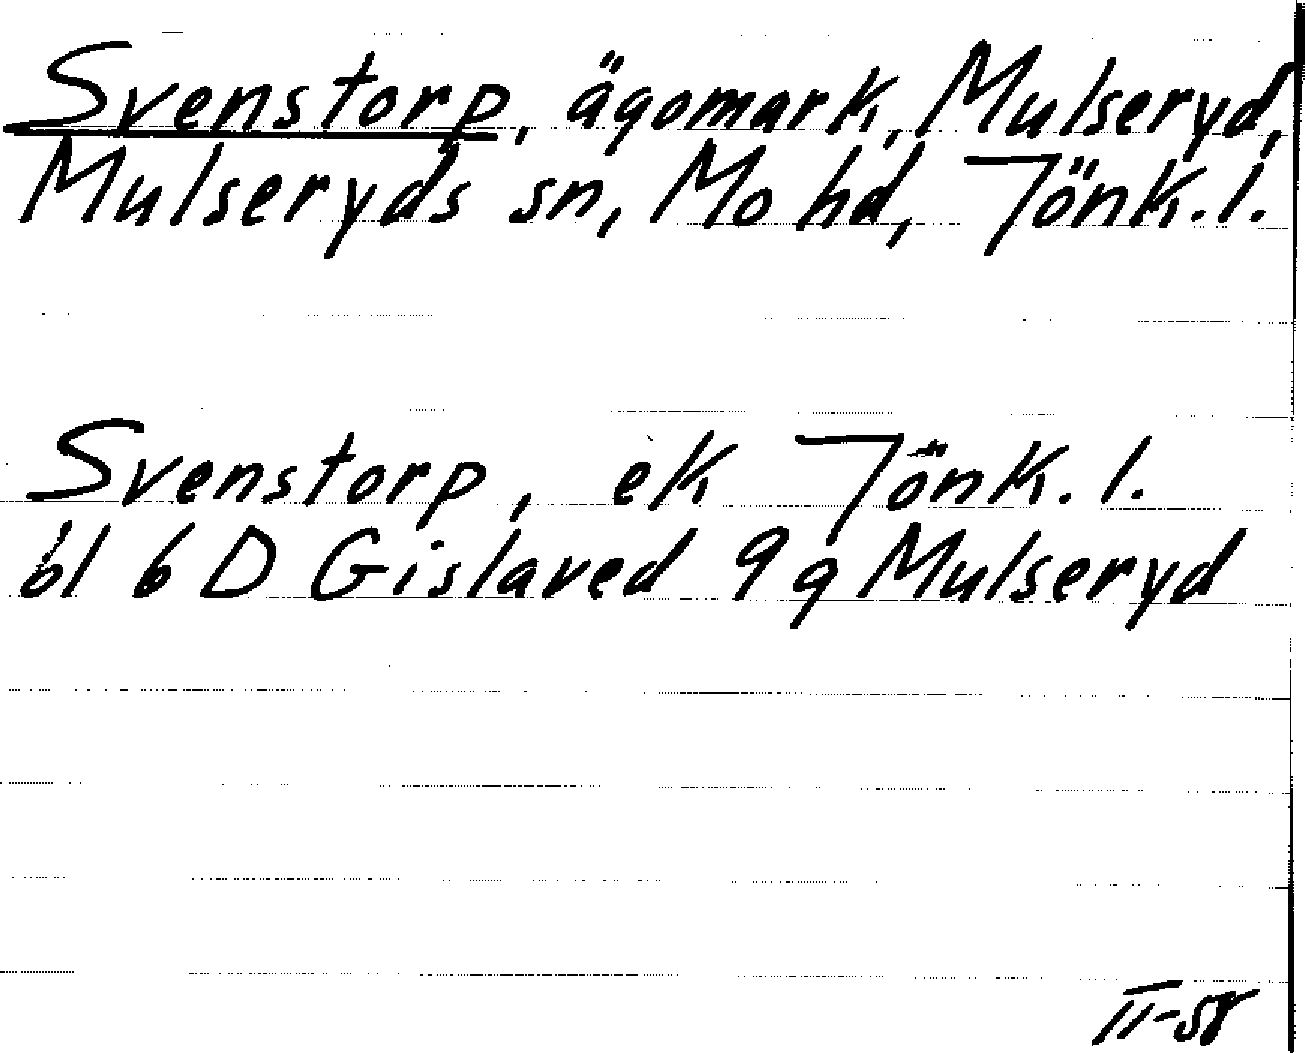 Svenstorp, ägomark, Mulseryd,
Mulseryds sn, Mo hd, Jönk.l.
Svenstorp, ek Jönk.l.
bl 6 D Gislaved 9 g Mulseryd
II-58